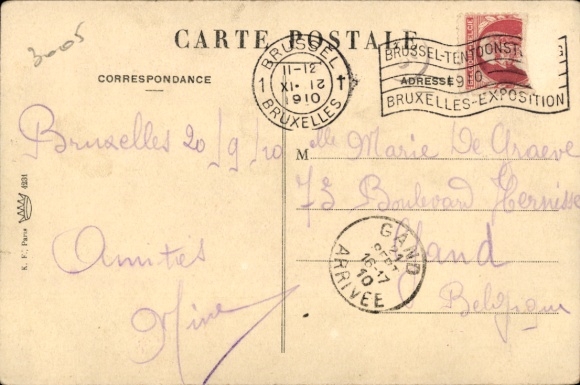 3005
CARTE POSTALE
CORRESPONDANCE
ADRESSE
BRUSSEL
11-12
1 IX 12
1910
BRUXELLES
BRUSSEL-TENTOONST
1910
BRUXELLES-EXPOSITION
Bruxelles 20/9/10
Amitiés
Mine
Melle Marie De Graeve
73 Boulevard
Gand
Belgique
GAND
21
SEPT
16-17
10
ARRIVEE
K. F. Paris 4231